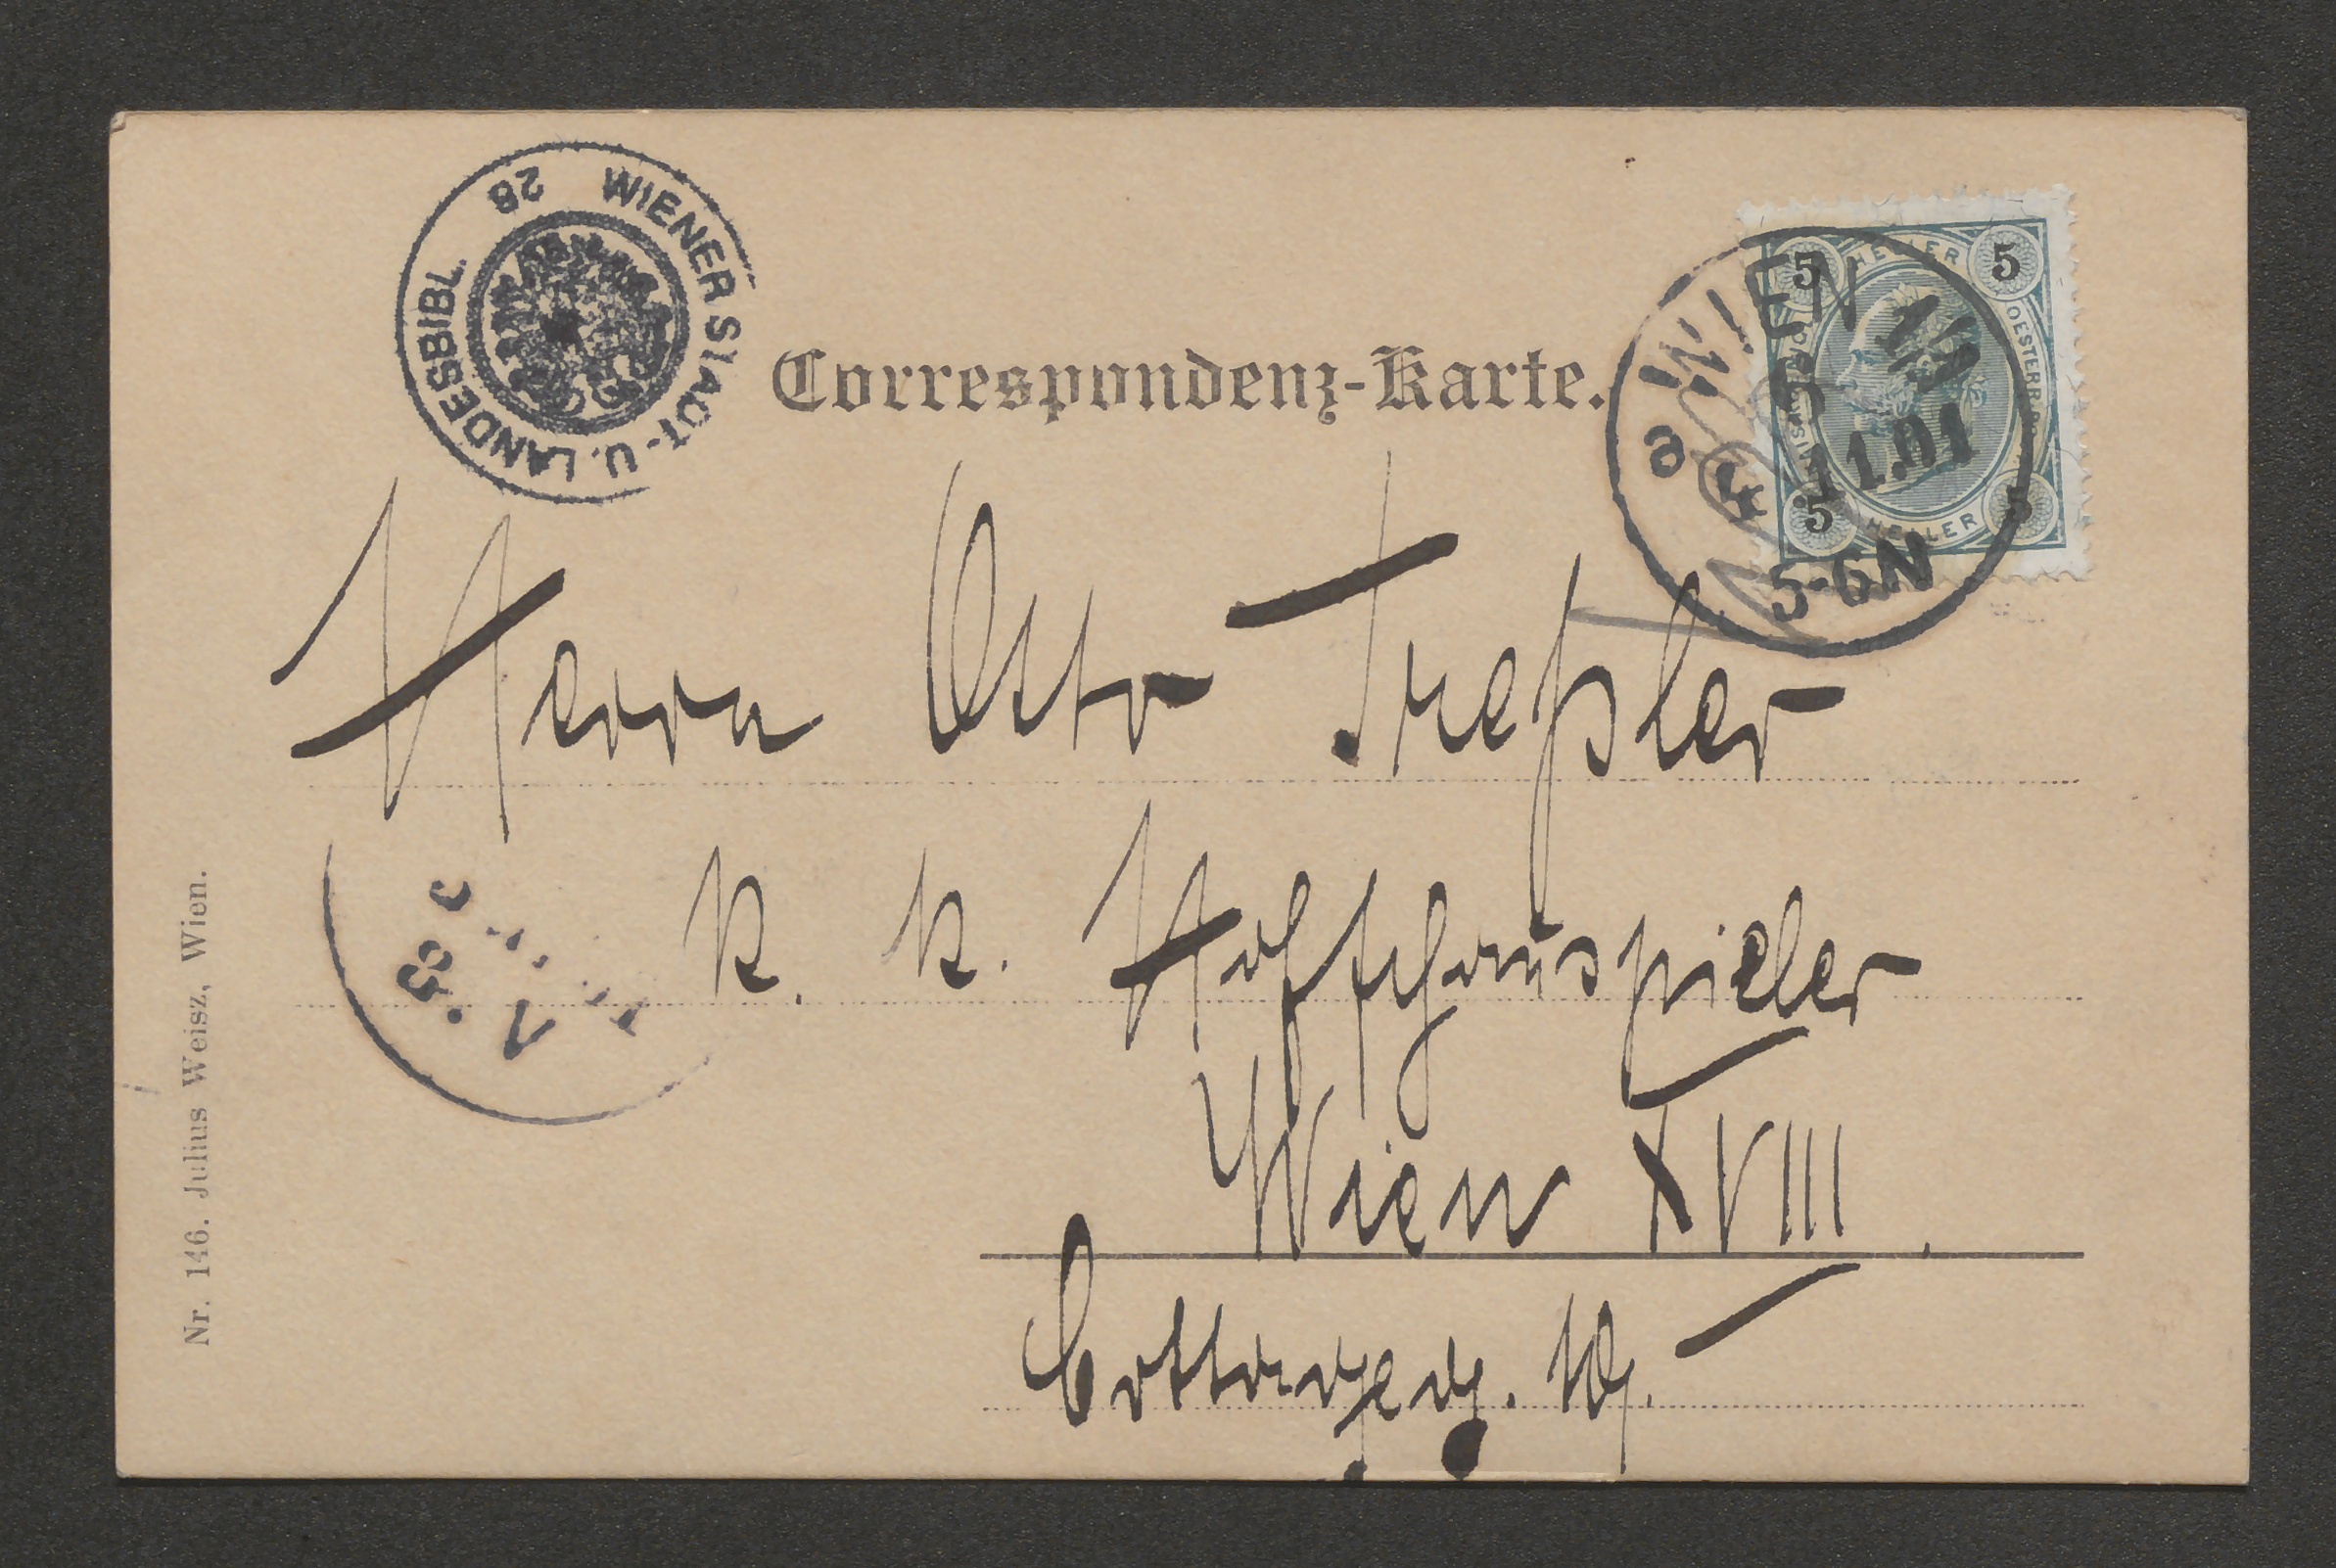 WIENER STADT- U. LANDESBIBL. 28
Correspondenz-Karte.
5 HELLER 5
5 HELLER 5
WIEN 1/1
6
11.01
5-6N
Herrn Otto Treßler
k. k. Hofschauspieler
Wien XVIII.
Cottageg. 19.
Nr. 146. Julius Weisz, Wien.